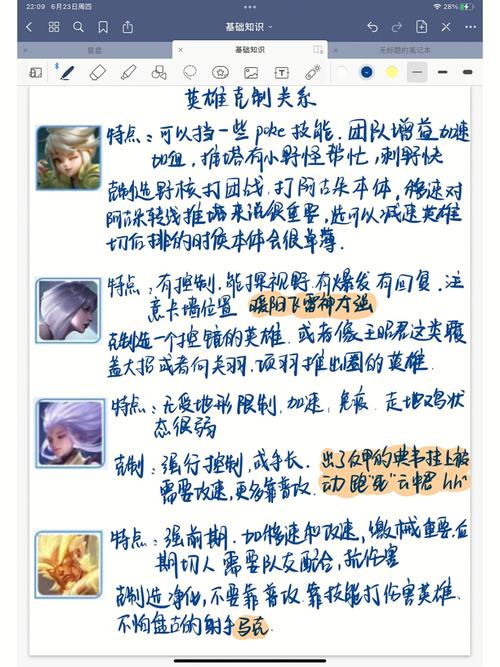 22:09 6月23日周四
28%
基础知识
复盘
基础知识
无标题的笔记本
英雄克制关系
特点：可以挡一些poke技能．团队增益加速
加血，推塔有小野怪帮忙，刺野快
克制选野核打团战．打阿古朵本体，移速对
阿古朵转线推塔来说很重要，还可以减速英雄
切后排的时候本体会很单薄．
特点：有控制，能探视野有爆发有回复．注
意卡墙位置 暖阳飞雷神太强
克制选一个控镜的英雄．或者像王昭君这类覆
盖大招或者向关羽、项羽推出圈的英雄．
特点：无受地形限制，加速，免疫．走地鸡状
态很弱
克制：强行控制，或手长． 出了反甲的典韦挂上被
需要攻速，更多靠普攻． 动 跑"死"云中君 hh
特点：强前期．加移速和攻速，缴械重要．后
期切人需要队友配合，抗伤害
克制选净化，不要靠普攻．靠技能打伤害英雄．
不怕盘古的射手马克